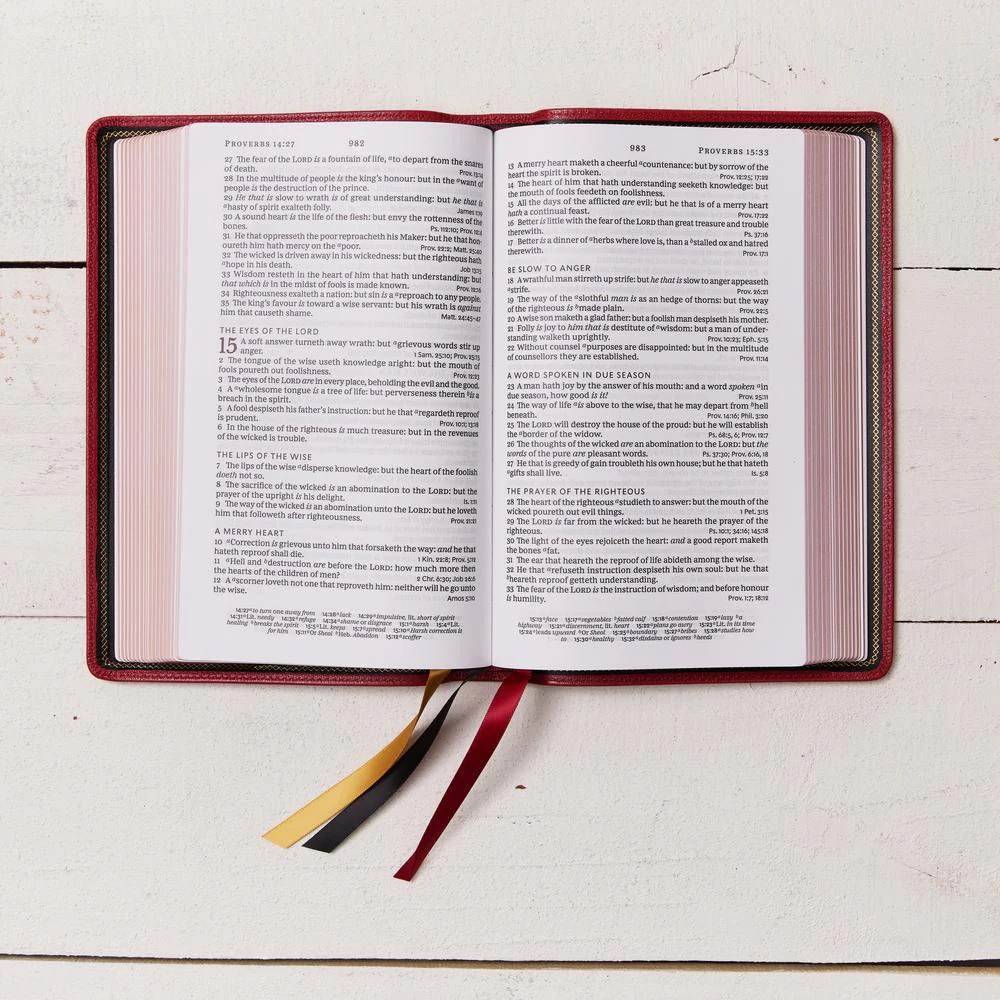 PROVERBS 14:27 982
27 The fear of the LORD is a fountain of life, ᵃto depart from the snares
of death. Prov. 13:14
28 In the multitude of people is the king's honour: but in the ᵃwant of
people is the destruction of the prince.
29 He that is slow to wrath is of great understanding: but he that is
ᵃhasty of spirit exalteth folly. James 1:19
30 A sound heart is the life of the flesh: but envy the rottenness of the
bones. Ps. 112:10; Prov. 12:4
31 He that oppresseth the poor reproacheth his Maker: but he that hon-
oureth him hath mercy on the ᵃpoor. Prov. 22:2; Matt. 25:40
32 The wicked is driven away in his wickedness: but the righteous hath
ᵃhope in his death. Job 13:15
33 Wisdom resteth in the heart of him that hath understanding: but
that which is in the midst of fools is made known. Prov. 12:16
34 Righteousness exalteth a nation: but sin is a ᵃreproach to any people.
35 The king's favour is toward a wise servant: but his wrath is against
him that causeth shame. Matt. 24:45–47
THE EYES OF THE LORD
15 A soft answer turneth away wrath: but ᵃgrievous words stir up
anger. 1 Sam. 25:10; Prov. 25:15
2 The tongue of the wise useth knowledge aright: but the mouth of
fools poureth out foolishness. Prov. 12:23
3 The eyes of the LORD are in every place, beholding the evil and the good.
4 A ᵃwholesome tongue is a tree of life: but perverseness therein ᵇis a
breach in the spirit.
5 A fool despiseth his father's instruction: but he that ᵃregardeth reproof
is prudent. Prov. 10:1; 13:18
6 In the house of the righteous is much treasure: but in the revenues
of the wicked is trouble.
THE LIPS OF THE WISE
7 The lips of the wise ᵃdisperse knowledge: but the heart of the foolish
doeth not so.
8 The sacrifice of the wicked is an abomination to the LORD: but the
prayer of the upright is his delight. Is. 1:11
9 The way of the wicked is an abomination unto the LORD: but he loveth
him that followeth after righteousness. Prov. 21:21
A MERRY HEART
10 ᵃCorrection is grievous unto him that forsaketh the way: and he that
hateth reproof shall die. 1 Kin. 22:8; Prov. 5:12
11 ᵃHell and ᵇdestruction are before the LORD: how much more then
the hearts of the children of men? 2 Chr. 6:30; Job 26:6
12 A ᵃscorner loveth not one that reproveth him: neither will he go unto
the wise. Amos 5:10
14:27ᵃto turn one away from 14:28ᵃlack 14:29ᵃimpulsive, lit. short of spirit
14:31ᵃLit. needy 14:32ᵃrefuge 14:34ᵃshame or disgrace 15:1ᵃharsh 15:4ᵃLit.
healing ᵇbreaks the spirit 15:5ᵃLit. keeps 15:7ᵃspread 15:10ᵃHarsh correction is
for him 15:11ᵃOr Sheol ᵇHeb. Abaddon 15:12ᵃscoffer
983 PROVERBS 15:33
13 A merry heart maketh a cheerful ᵃcountenance: but by sorrow of the
heart the spirit is broken. Prov. 12:25; 17:22
14 The heart of him that hath understanding seeketh knowledge: but
the mouth of fools feedeth on foolishness.
15 All the days of the afflicted are evil: but he that is of a merry heart
hath a continual feast. Prov. 17:22
16 Better is little with the fear of the LORD than great treasure and trouble
therewith. Ps. 37:16
17 Better is a dinner of ᵃherbs where love is, than a ᵇstalled ox and hatred
therewith. Prov. 17:1
BE SLOW TO ANGER
18 A wrathful man stirreth up strife: but he that is slow to anger appeaseth
ᵃstrife. Prov. 26:21
19 The way of the ᵃslothful man is as an hedge of thorns: but the way
of the righteous is ᵇmade plain. Prov. 22:5
20 A wise son maketh a glad father: but a foolish man despiseth his mother.
21 Folly is joy to him that is destitute of ᵃwisdom: but a man of under-
standing walketh uprightly. Prov. 10:23; Eph. 5:15
22 Without counsel ᵃpurposes are disappointed: but in the multitude
of counsellors they are established. Prov. 11:14
A WORD SPOKEN IN DUE SEASON
23 A man hath joy by the answer of his mouth: and a word spoken ᵃin
due season, how good is it! Prov. 25:11
24 The way of life ᵃis above to the wise, that he may depart from ᵇhell
beneath. Prov. 14:16; Phil. 3:20
25 The LORD will destroy the house of the proud: but he will establish
the ᵃborder of the widow. Ps. 68:5, 6; Prov. 12:7
26 The thoughts of the wicked are an abomination to the LORD: but the
words of the pure are pleasant words. Ps. 37:30; Prov. 6:16, 18
27 He that is greedy of gain troubleth his own house; but he that hateth
ᵃgifts shall live. Is. 5:8
THE PRAYER OF THE RIGHTEOUS
28 The heart of the righteous ᵃstudieth to answer: but the mouth of the
wicked poureth out evil things. 1 Pet. 3:15
29 The LORD is far from the wicked: but he heareth the prayer of the
righteous. Ps. 10:1; 34:16; 145:18
30 The light of the eyes rejoiceth the heart: and a good report maketh
the bones ᵃfat.
31 The ear that heareth the reproof of life abideth among the wise.
32 He that ᵃrefuseth instruction despiseth his own soul: but he that
ᵇheareth reproof getteth understanding.
33 The fear of the LORD is the instruction of wisdom; and before honour
is humility. Prov. 1:7; 18:12
15:13ᵃface 15:17ᵃvegetables ᵇfatted calf 15:18ᵃcontention 15:19ᵃlazy ᵇa
highway 15:21ᵃdiscernment, lit. heart 15:22ᵃplans go awry 15:23ᵃLit. in its time
15:24ᵃleads upward ᵇOr Sheol 15:25ᵃboundary 15:27ᵃbribes 15:28ᵃstudies how
to 15:30ᵃhealthy 15:32ᵃdisdains or ignores ᵇheeds